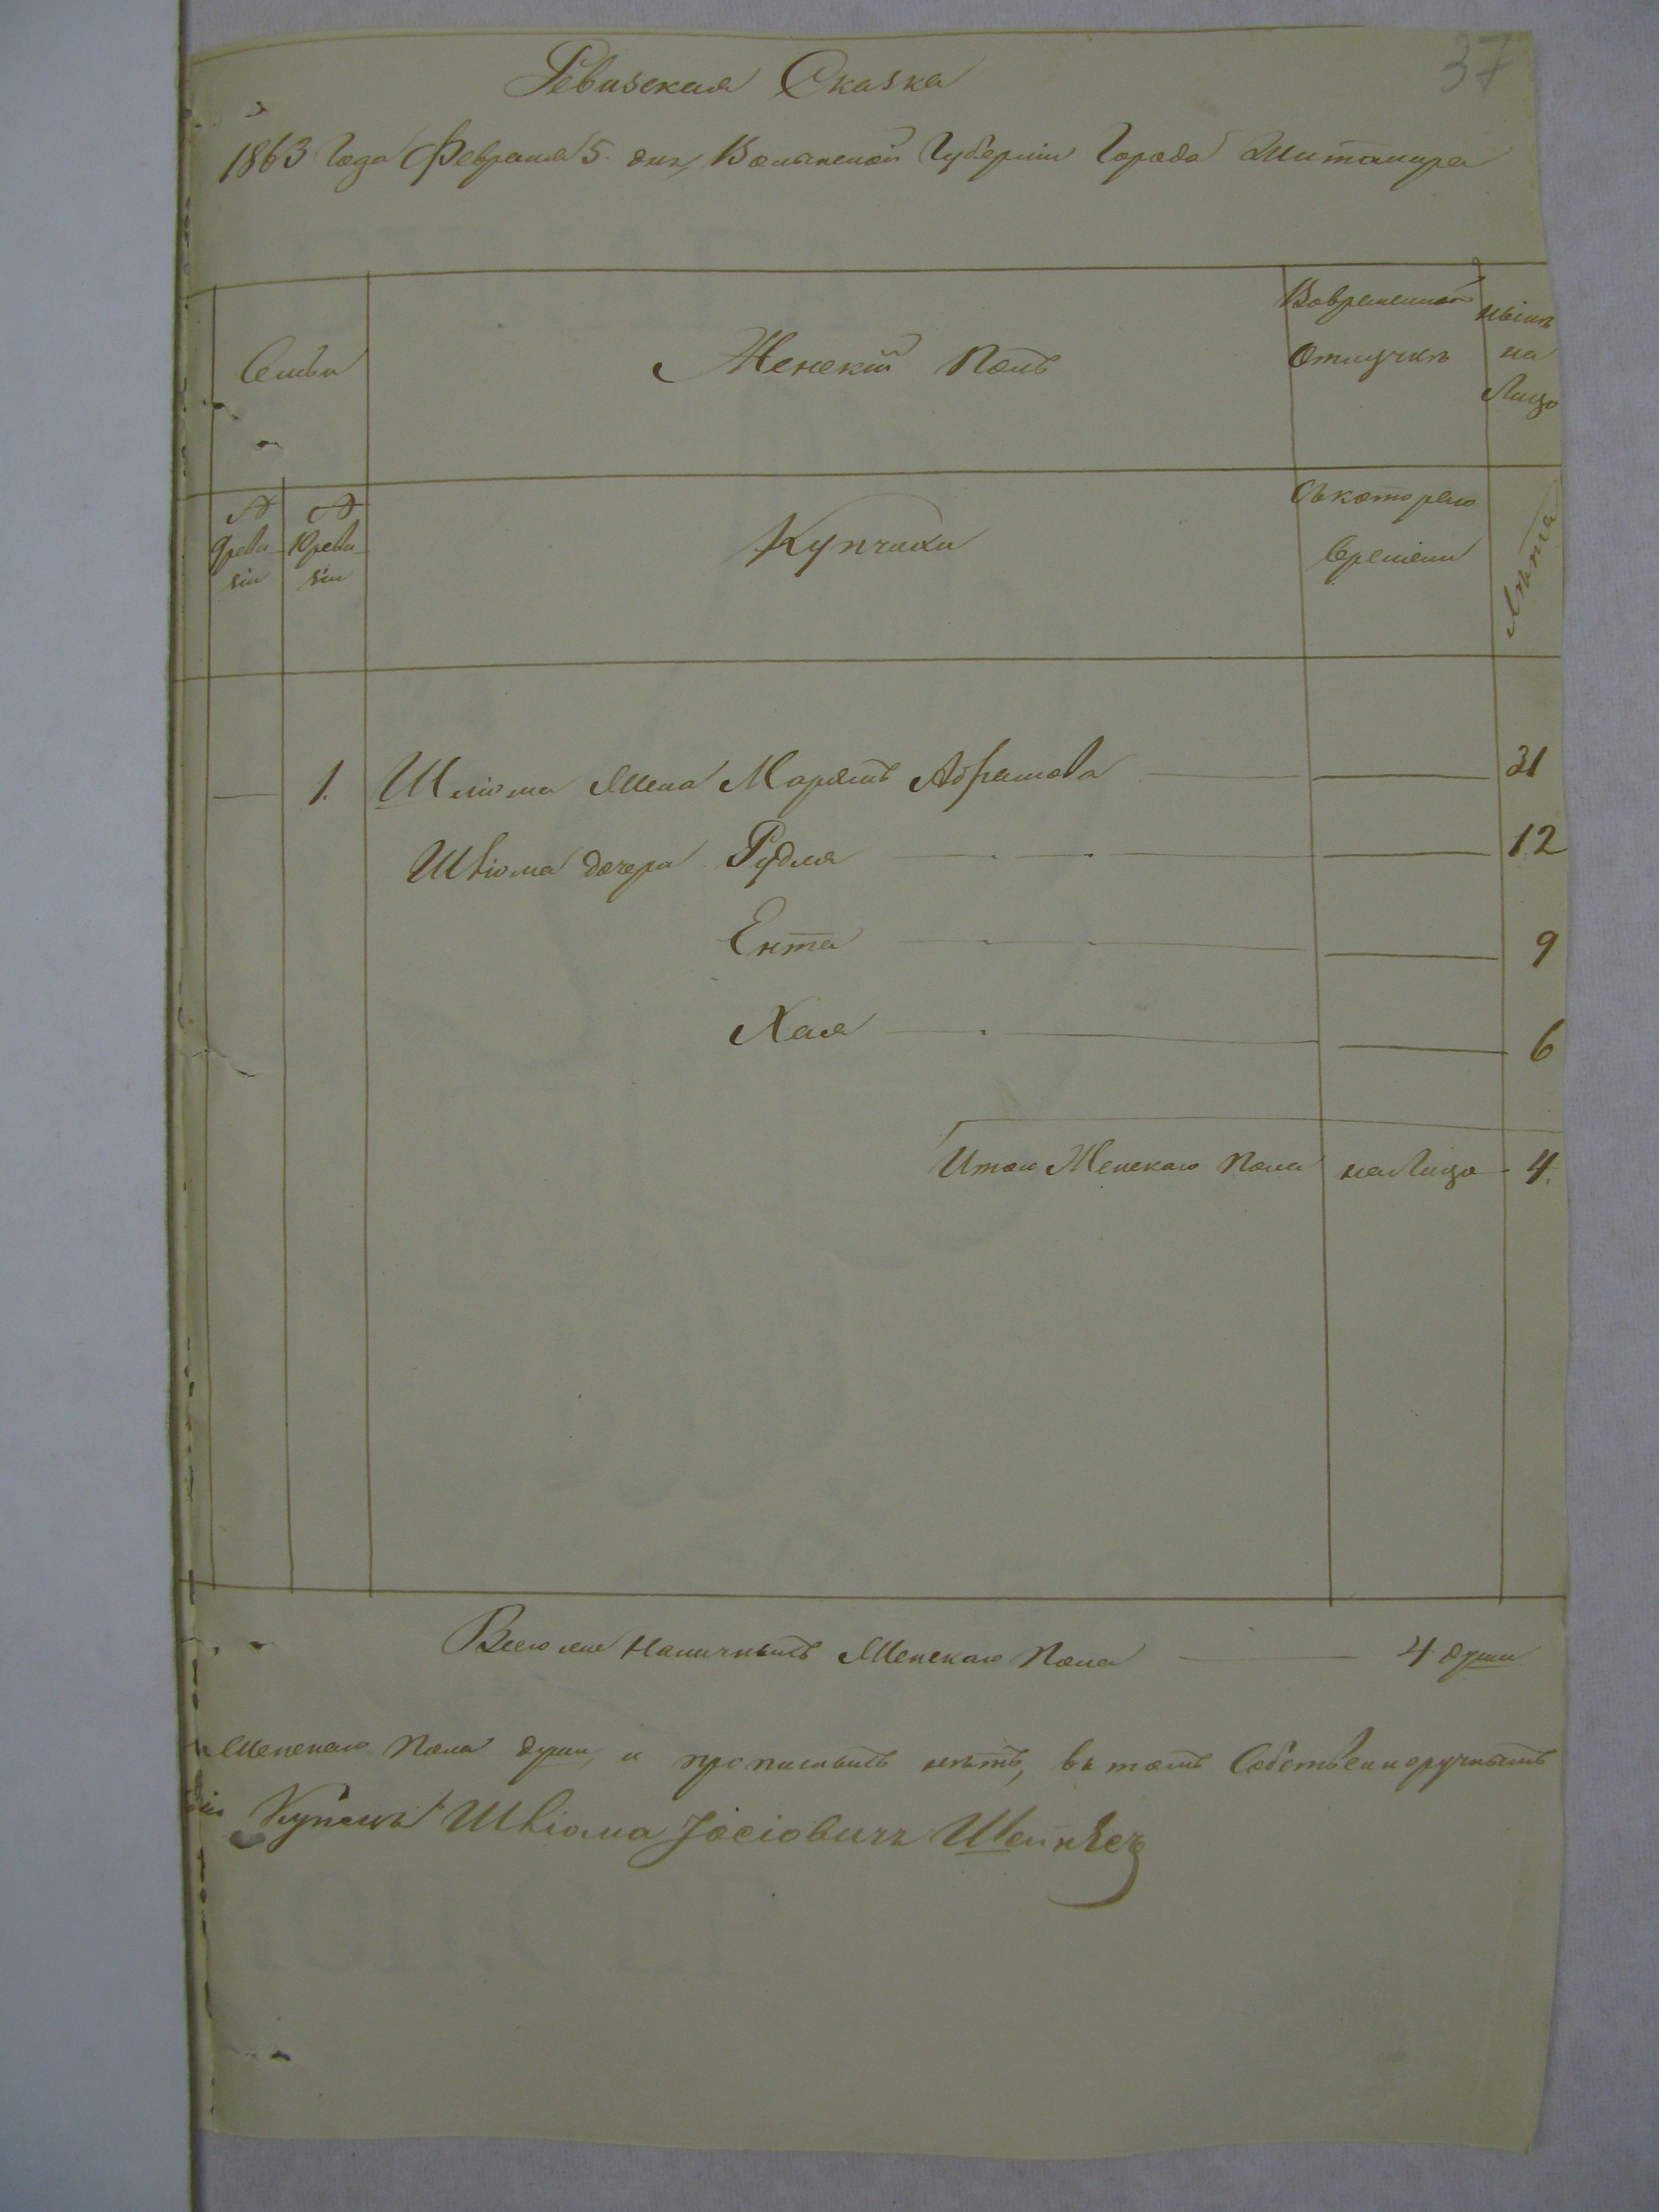 37
Ревизская Сказка
1863 Года Февраля 5. дня, Волынской Губерніи Города Житомира
Семьи
Женскій Полъ
Вовременной Отлучкѣ
нынѣ на Лицо
№ 9 реви зіи
№ 10 реви зіи
Купчихи
Съкоторого времени
Лѣта
1. Шліома Жена Маріемъ Абрамова 31
Шліома дочери Рудля 12
Ента 9
Хая 6
Итого Женскаго Пола на Лицо 4.
Всего Наличныхъ Женскаго Пола 4 души
Женскаго Пола души, и прописныхъ нѣтъ, въ томъ Собственноручнымъ
Купецъ Шліома Іосіовичъ